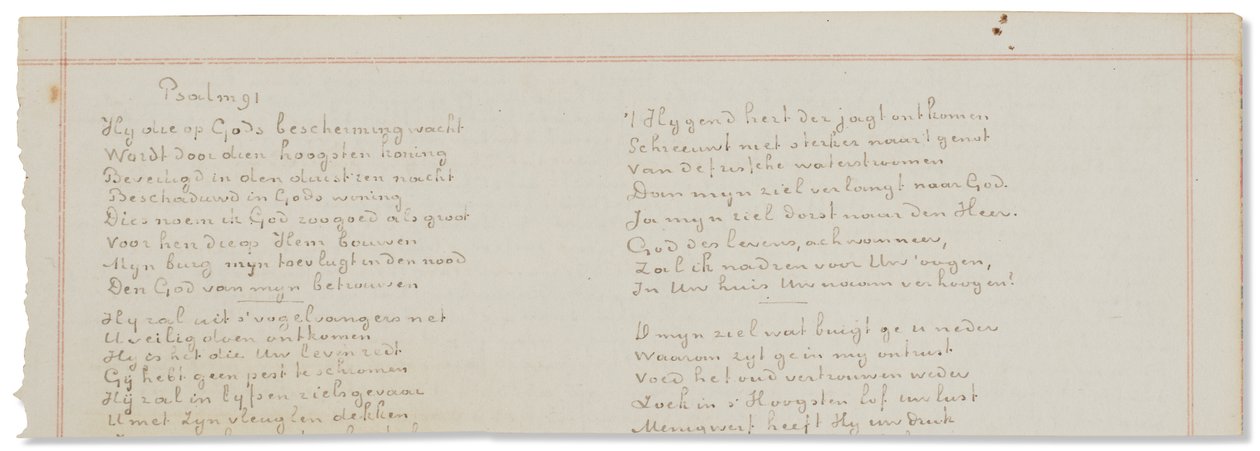 Psalm 91
Hy die op Gods bescherming wacht
Wordt door dien hoogsten koning
Beveiligd in den duistren nacht
Beschaduwd in Gods woning
Dies noem ik God zoo goed als groot
Voor hen die op Hem bouwen
Myn burg myn toevlugt in den nood
Den God van myn betrouwen
Hy zal uit s'vogelvangers net
U veilig doen ontkomen
Hy is het die Uw leven redt
Gy hebt geen pest te schromen
Hÿ zal in lyf en zielsgevaar
U met Zyn vleuglen dekken
't Hygend hert der jagt ontkomen
Schreeuwt niet sterker naar 't genot
Van de frissche waterstroomen
Dan myn ziel verlangt naar God.
Ja myn ziel dorst naar den Heer.
God des levens, ach wanneer,
Zal ik nadren voor Uw oogen,
In Uw huis Uw naam verhoogen?
O myn ziel wat buigt ge u neder
Waarom zyt ge in my ontrust
Voed het oud vertrouwen weder
Zoek in s' Hoogsten lof uw lust
Menigwerf heeft Hy uw druk